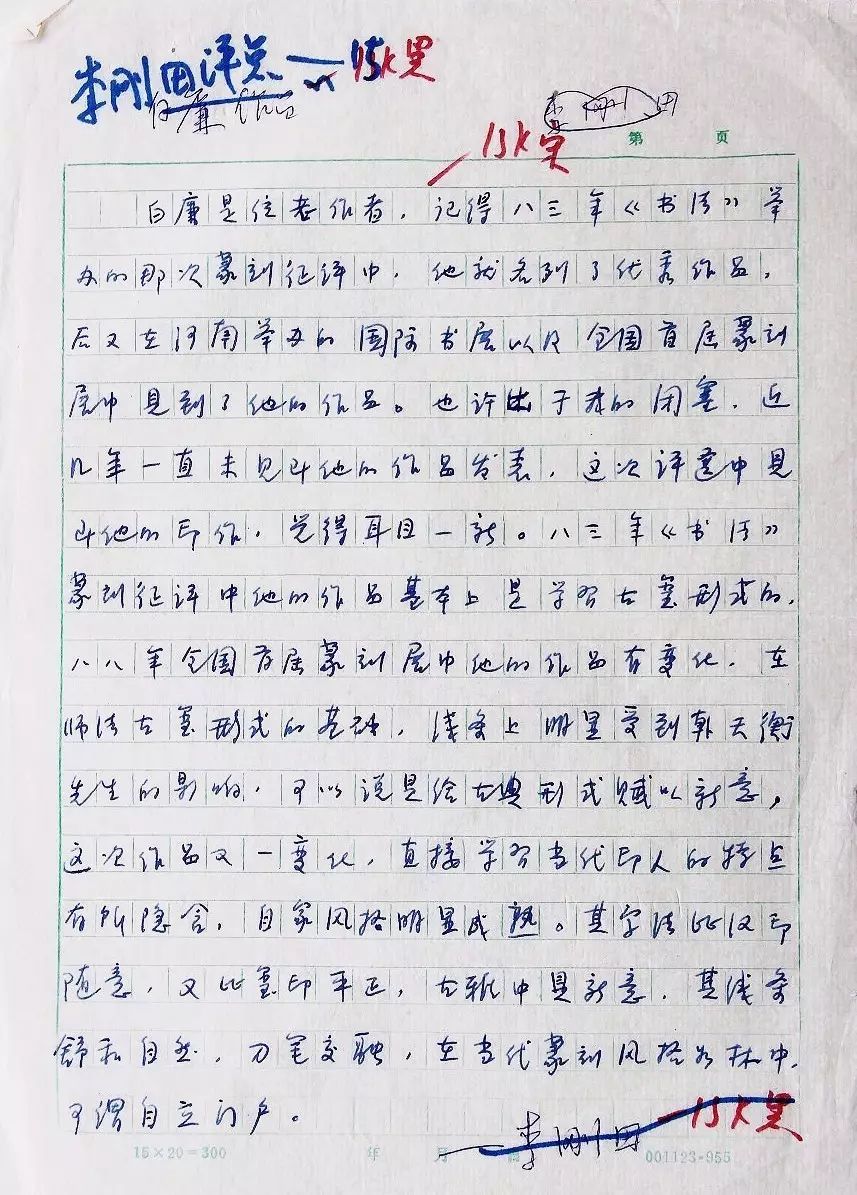 李刚田评点 15K黑
白廉作品 李刚田
15K宋
第 页
白廉是位老作者，记得八三年《书法》举
办的那次篆刻征评中，他就名列了优秀作品，
后又在河南举办的国际书展以及全国首届篆刻
展中见到了他的作品。也许出于我的闭塞，近
几年一直未见到他的作品发表，这次评选中见
到他的印作，觉得耳目一新。八三年《书法》
篆刻征评中他的作品基本上是学习古玺形式的，
八八年全国首届篆刻展中他的作品有变化，在
师法古玺形式的基础，线条上明显受到韩天衡
先生的影响，可以说是给古典形式赋以新意，
这次作品又一变化，直接学习当代印人的特点
有所隐含，自家风格明显成熟。其字法比汉印
随意，又比玺印平正，古雅中具新意，其线条
舒和自然，刀笔交融，在当代篆刻风格如林中，
可谓自立门户。
李刚田 15K黑
15×20=300 年 月 001123-955